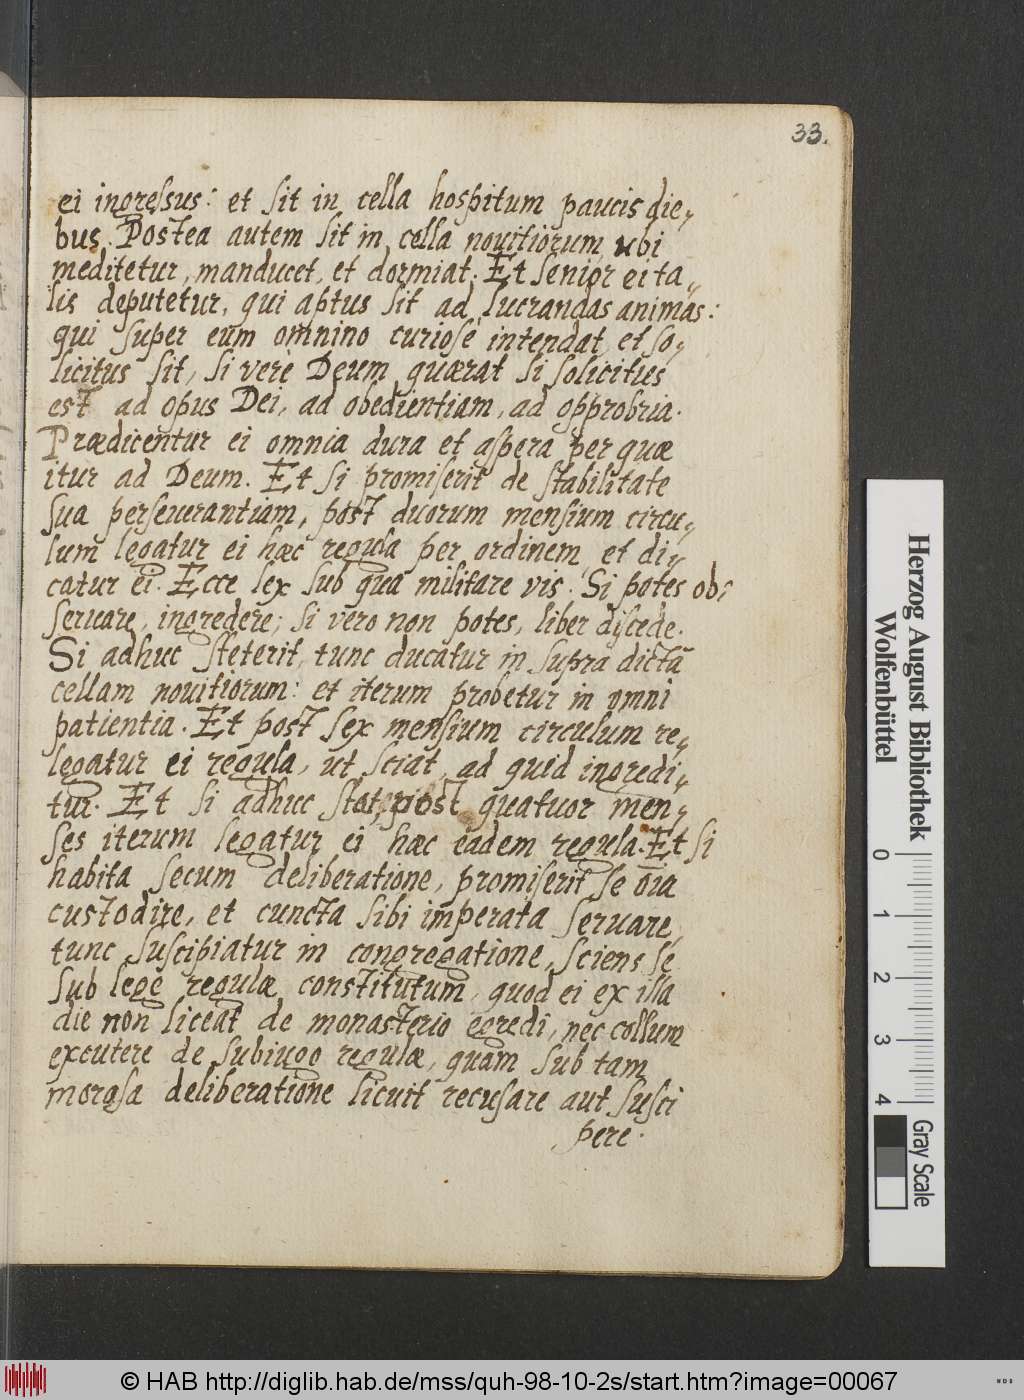 33.
ei ingressus: et sit in cella hospitum paucis die,
bus. Postea autem sit in cella nouitiorum ubi
meditetur, manducet, et dormiat. Et senior ei ta,
lis deputetur, qui aptus sit ad lucrandas animas:
qui super eum omnino curiosè intendat et so,
licitus sit, si verè Deum quærat si solicitus
est ad opus Dei, ad obedientiam, ad opprobria.
Prædicentur ei omnia dura et aspera per quæ
itur ad Deum. Et si promiserit de stabilitate
sua perseuerantiam, post duorum mensium circu,
lum legatur ei hæc regula per ordinem et di,
catur ei. Ecce lex sub qua militare vis. Si potes ob,
seruare, ingredere; si vero non potes, liber discede.
Si adhuc steterit, tunc ducatur in supra dictã
cellam nouitiorum: et iterum probetur in omni
patientia. Et post sex mensium circulum re,
legatur ei regula, ut sciat, ad quid ingredi,
tur. Et si adhuc stat, post quatuor men,
ses iterum legatur ei hæc eadem regula. Et si
habita secum deliberatione, promiserit se oia
custodire, et cuncta sibi imperata seruare,
tunc suscipiatur in congregatione, sciens se
sub lege regulæ constitutum, quod ei ex illa
die non liceat de monasterio egredi, nec collum
excutere de subiugo regulæ, quam sub tam
morosa deliberatione licuit recusare aut susci
pere.
Herzog August Bibliothek
Wolfenbüttel
0 1 2 3 4
Gray Scale
© HAB http://diglib.hab.de/mss/quh-98-10-2s/start.htm?image=00067